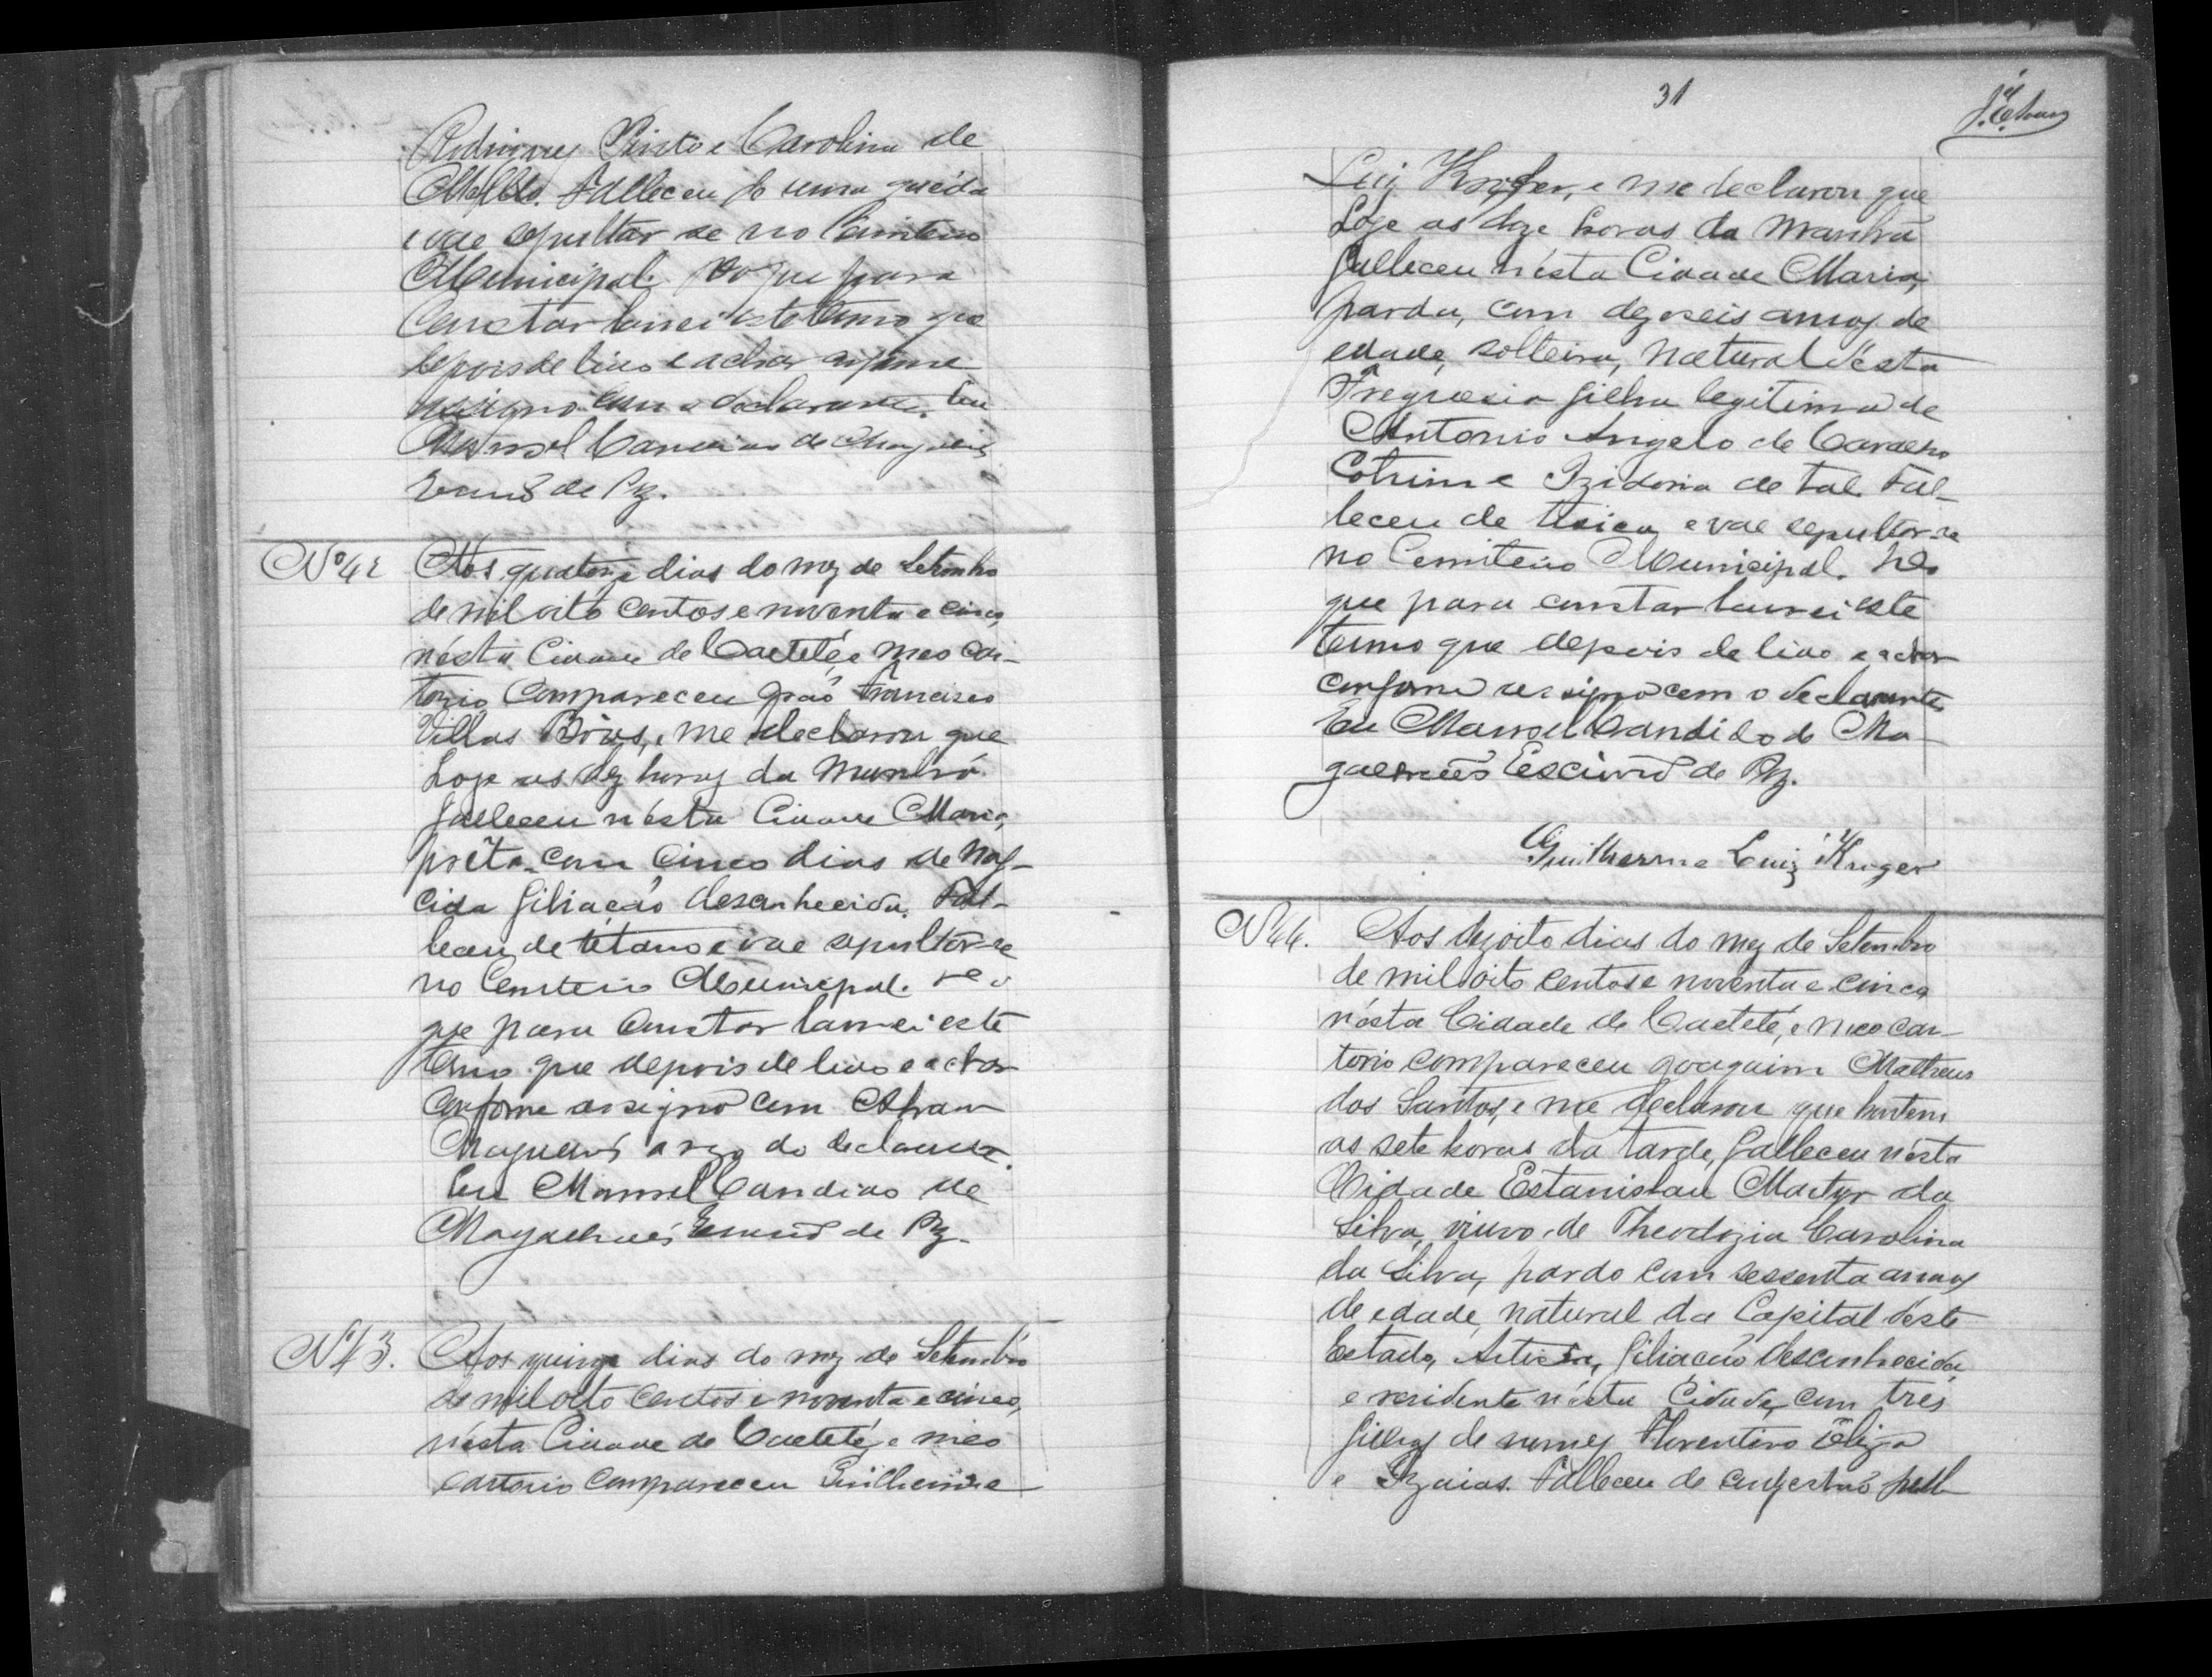 Pinto e Carolina de
Falleceu de uma quéda
e vae sepultar se no Cemiterio
Municipal. Do que para
Constar lavrei este termo que
depois de lido e achar conforme
assigno com o declarante. Eu
Manoel Candido de
Escrivão de Pz.
Nº 42
Aos quatorze dias do mez de Setembro
de mil oito centos e noventa e cinco,
nésta Cidade de Caeteté, e meo car-
torio Compareceu João Francisco
Villas Bôas, e me declarou que
hoje as dez horas da manhã
falleceu nésta Cidade Maria,
prêta, com cinco dias de nas-
cida filiação desconhecida. Fal-
leceu de tétano e vae sepultar-se
no Cemiterio Municipal. Do
que para Constar lavrei este
termo que depois de lido e achar
Conforme assigno com
a rogo do declarante.
Eu Manoel Candido de
Magalhaẽs Escrivão de Pz.
Nº 43.
Aos quinze dias do mez de Setembro
de mil oito centos e noventa e cinco,
nésta Cidade de Caetété, e meo
cartorio Compareceu Guilherme
31
Luiz Kruger, e me declarou que
hoje as doze horas da manhã
falleceu nésta Cidade Maria,
parda, com dezeseis annos de
edade, solteira, natural désta
Freguezia filha legitima de
Antonio Angelo de Carvalho
Cotrim e Izidoria de tal. Fal-
leceu de tisica, e vae sepultar-se
no Cemiterio Municipal. Do
que para constar lavrei este
termo que depois de lido e achar
conforme assigno com o declarante.
Eu Manoel Candido de Ma-
galhaẽs Escrivão de Pz.
Guilherme Luiz Kruger
Nº 44.
Aos dezoito dias do mez de Setembro
de mil oito centos e noventa e cinco,
nésta Cidade de Caeteté, e meo car-
torio compareceu Joaquim Matheus
dos Santos, e me declarou que hontem
as sete horas da tarde, falleceu nésta
Cidade Estanislau Martyr da
Silva, viuvo de Theodozia Carolina
da Silva, pardo com sessenta annos
de edade, natural da Capital déste
Estado, Artista, filiação desconhecida,
e residente nésta Cidade, com trés
filhos de nomes Florentino Eliza
e Izaias. Falleceu de congestão pull-